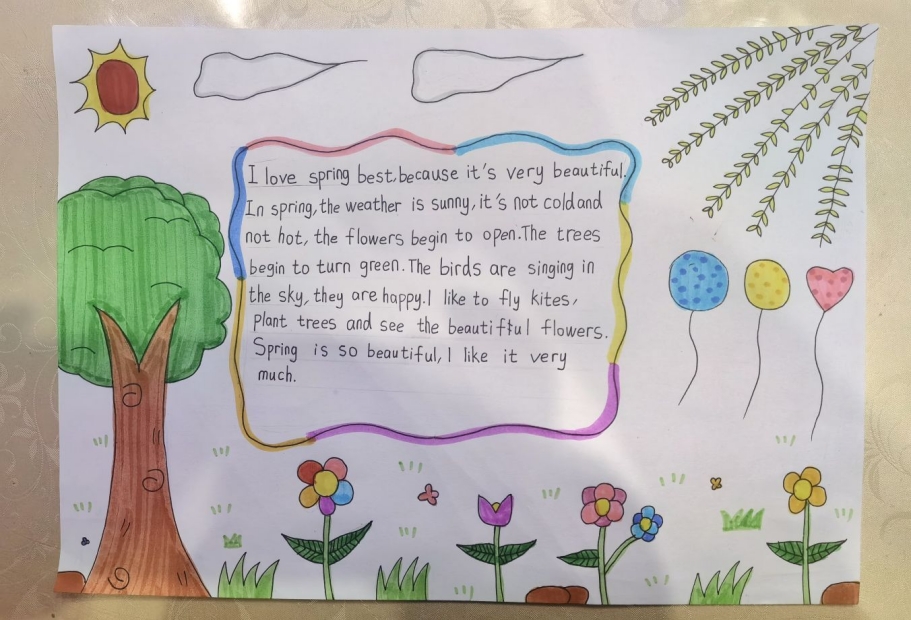 I love spring best,because it's very beautiful.
In spring,the weather is sunny,it's not cold and
not hot, the flowers begin to open.The trees
begin to turn green.The birds are singing in
the sky, they are happy.I like to fly kites,
Plant trees and see the beautiftul flowers.
Spring is so beautiful,I like it very
much.